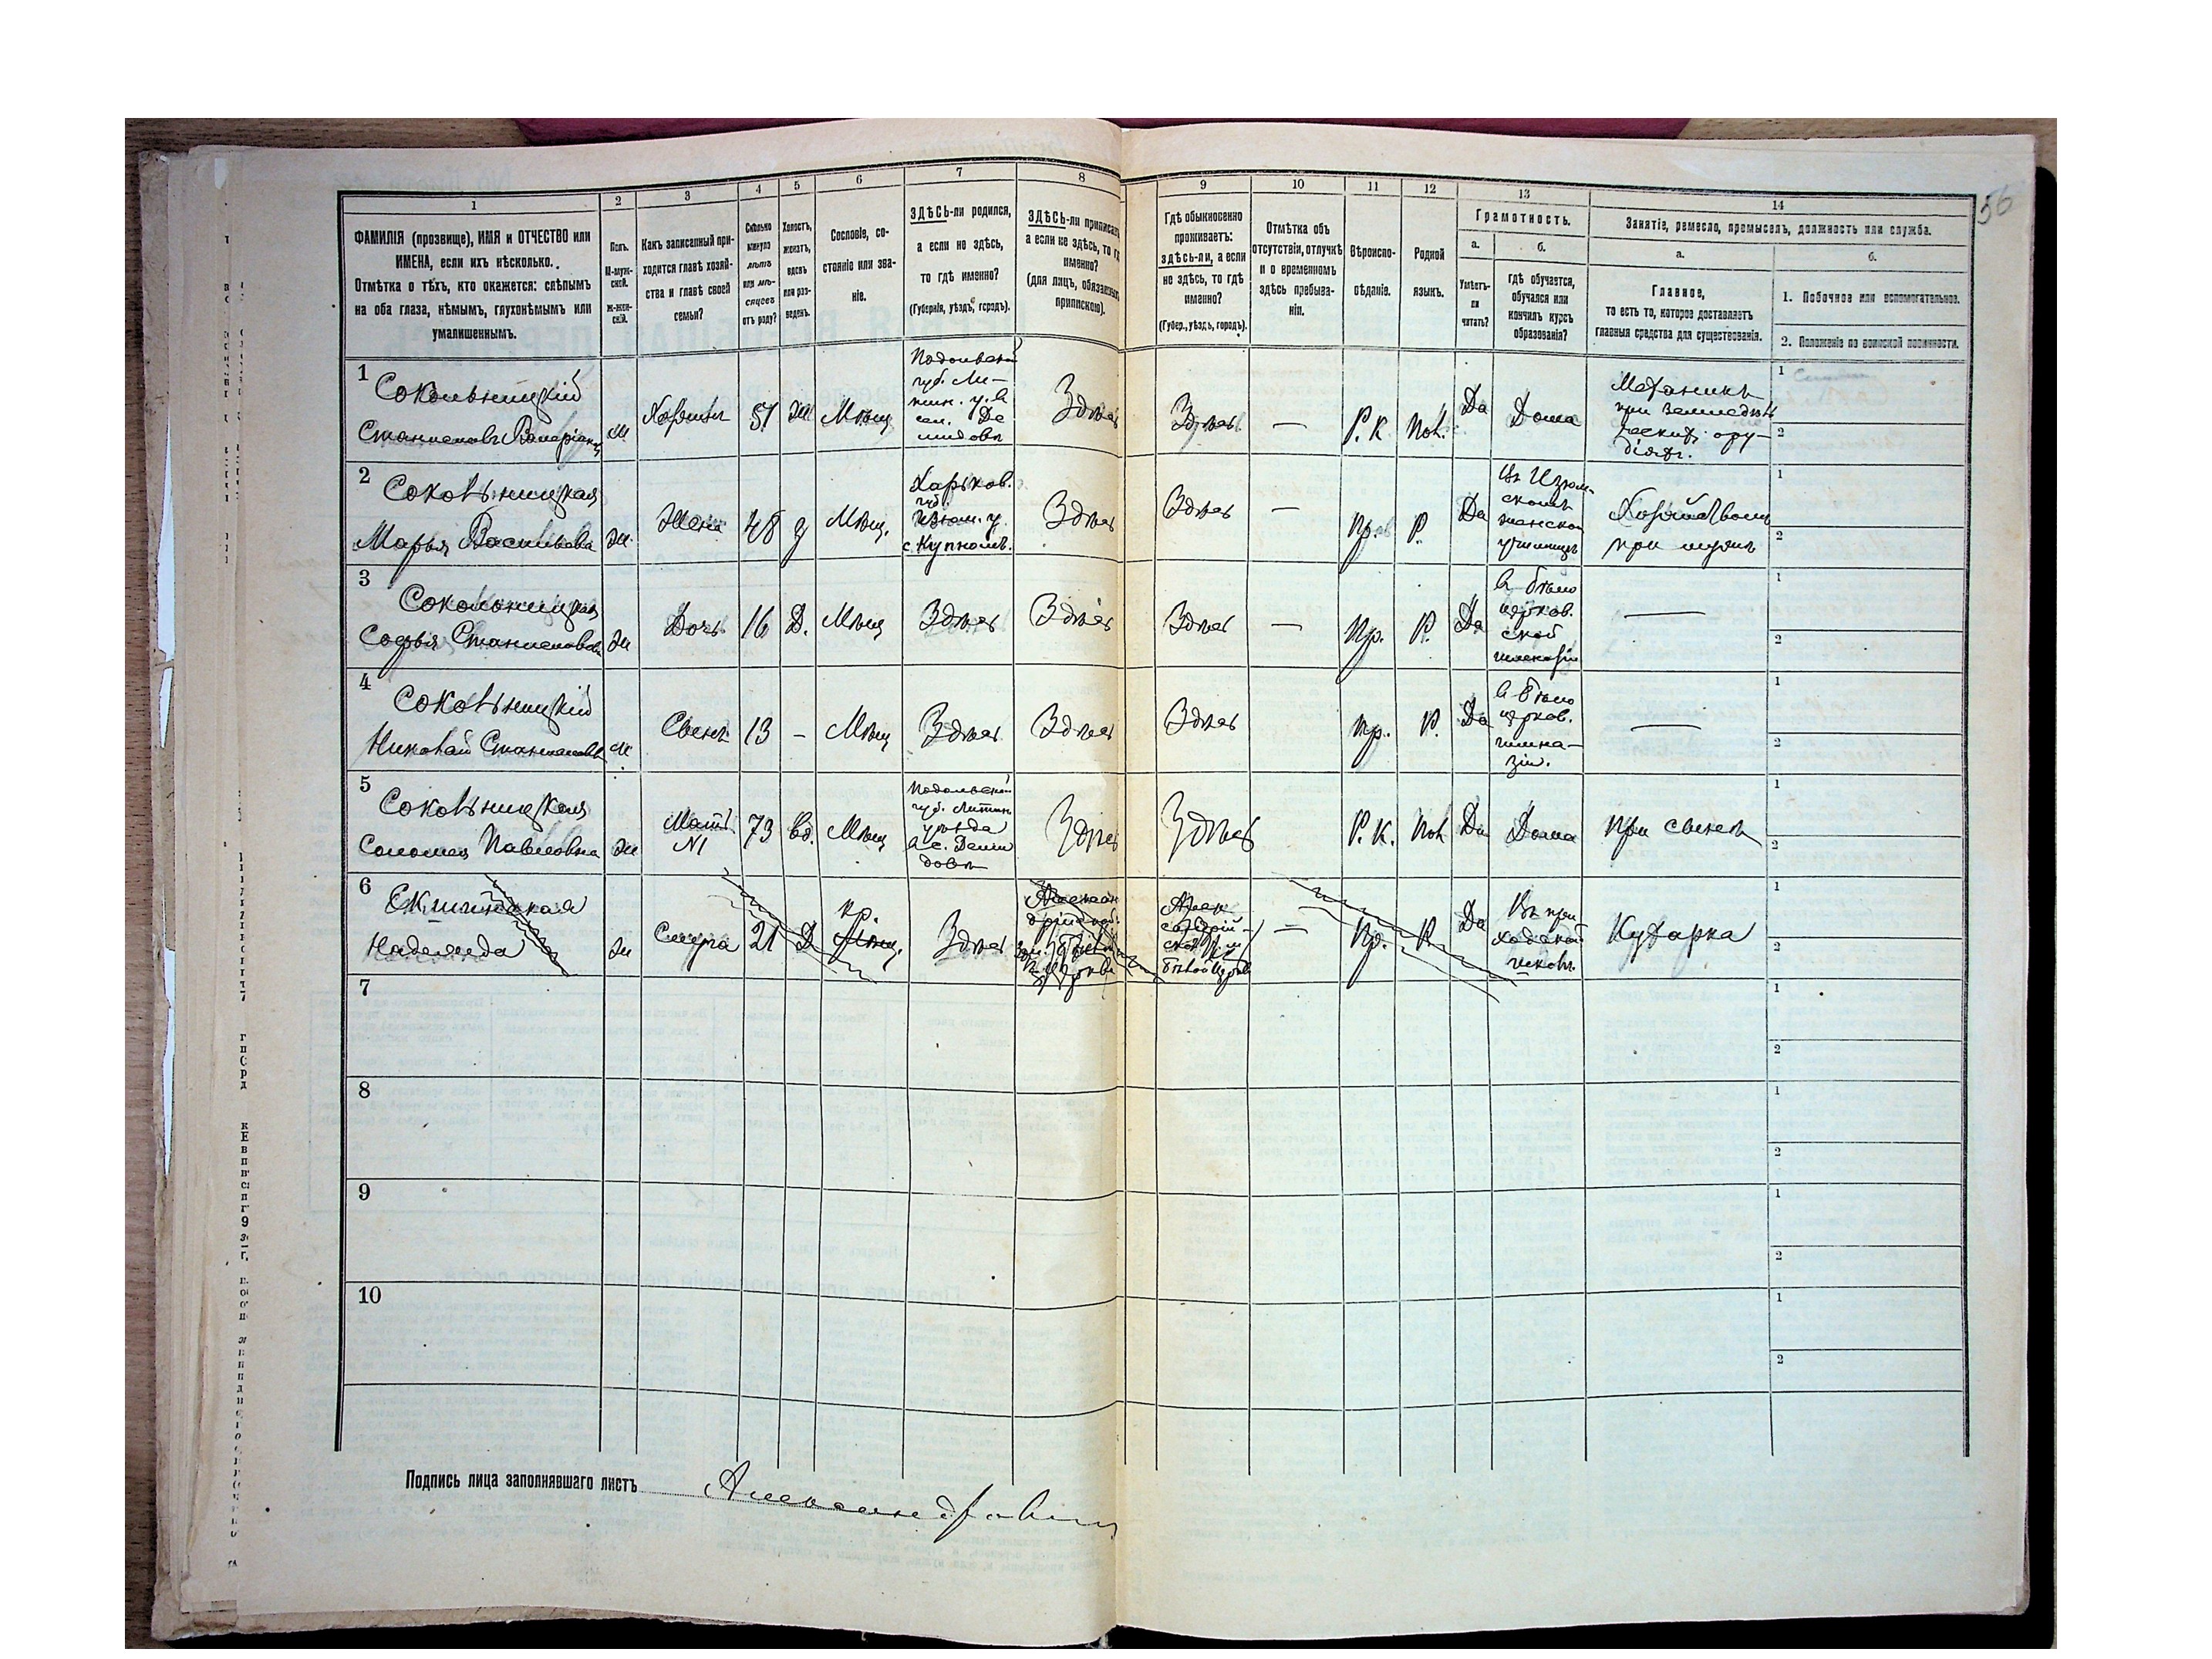 56
1 2 3 4 5 6 7 8 9 10 11 12 13 14
ФАМИЛІЯ (прозвище), ИМЯ и ОТЧЕСТВО или
ИМЕНА, если ихъ нѣсколько.
Отмѣтка о тѣхъ, кто окажется: слѣпымъ
на оба глаза, нѣмымъ, глухонѣмымъ или
умалишеннымъ.
Полъ.
М-муж-
ской.
Ж-жен-
скій.
Какъ записанный при-
ходится главѣ хозяй-
ства и главѣ своей
семьи?
Сколько
минуло
лѣтъ
или мѣ-
сяцевъ
отъ роду?
Холостъ,
женатъ,
вдовъ
или раз-
веденъ.
Сословіе, со-
стояніе или зва-
ніе.
ЗДѢСЬ-ли родился,
а если не здѣсь,
то гдѣ именно?
(Губернія, уѣздъ, городъ).
ЗДѢСЬ-ли приписанъ,
а если не здѣсь, то гдѣ
именно?
(для лицъ, обязанныхъ
припиской).
Гдѣ обыкновенно
проживаетъ:
здѣсь-ли, а если
не здѣсь, то гдѣ
именно?
(Губер., уѣздъ, городъ).
Отмѣтка объ
отсутствіи, отлучкѣ
и о временномъ
здѣсь пребыва-
ніи.
Вѣроиспо-
вѣданіе.
Родной
языкъ.
Грамотность.
а.
Умѣетъ-
ли
читать?
б.
гдѣ обучается,
обучался или
кончилъ курсъ
образованія?
Занятіе, ремесло, промыселъ, должность или служба.
а.
Главное,
то есть то, которое доставляетъ
главныя средства для существованія.
б.
1. Побочное или вспомогательное.
2. Положеніе по воинской повинности.
1
Сокольницкій
м
Хозяинъ
51
Ж
Мѣщ
Подольской
губ. Ли-
тин. у. в
сел. Де
мидовъ
Здѣсь
Здѣсь
—
Р. К
Пол.
Да
Дома
Механикъ
при земледѣль
ческихъ ору-
діяхъ.
1
2
2
Сокольницкая
Марья Васильева
ж
Жена
48
З
Мѣщ.
Харьков.
губ.
Изюм. у.
Здѣсь
Здѣсь
—
Пр.
Р.
Да
въ Изюм-
скомъ
женском
училищѣ
при мужѣ
1
2
3
Сокольницкая
Софья Станиславова
ж
Дочь
16
Д.
Мѣщ
Здѣсь
Здѣсь
Здѣсь
—
Пр.
Р.
Да
в бѣло
церков.
ской
гимназіи
—
1
2
4
Сокольницкій
Николай Станиславов
м
Сынъ
13
–
Мѣщ
Здѣсь
Здѣсь
Здѣсь
Пр.
Р.
Да
в бѣло
церков.
гимна-
зіи.
—
1
2
5
Сокольницкая
Саломея Павловна
ж
Мать
N1
73
вд.
Мѣщ
Подольской
губ. Литин
уѣзда
в с. Деми
довъ
Здѣсь
Здѣсь
Р. К.
Пол
Да
Дома
при сынѣ
1
2
6
Надежда
ж
Слуга
21
Д
кр.
Мѣщ.
Здѣсь
—
Пр.
Р
Да
Въ при
ходской
школѣ.
Кухарка
1
2
7
1
2
8
1
2
9
1
2
10
1
2
Подпись лица заполнявшаго листъ